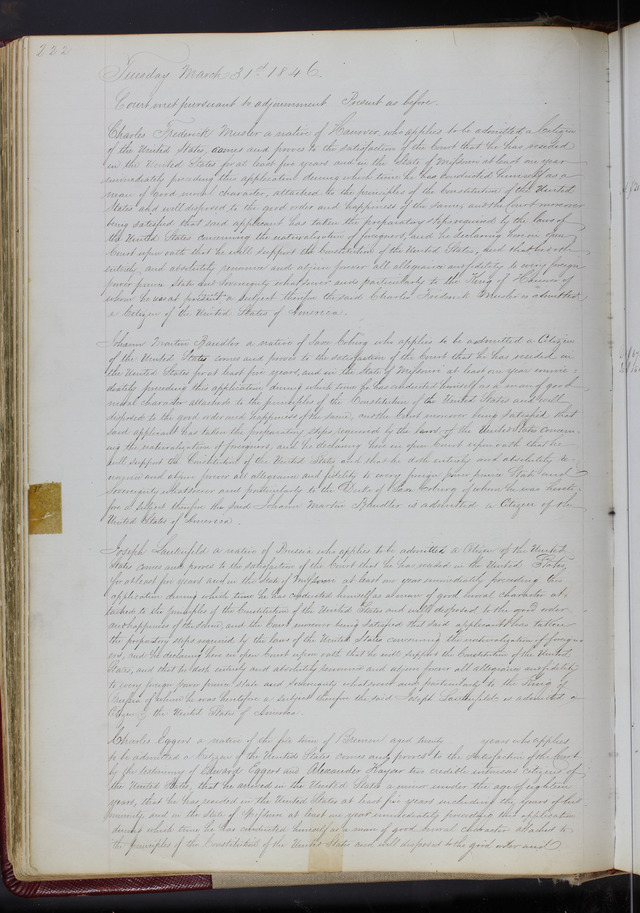 222
Tuesday March 31st 1846.
Court met pursuant to adjournment Present as before.
Charles Frederick Meusler a native of Hanover, who applies to be admitted a Citizen
of the United States, comes and proves to the satisfaction of the Court that he has resided
in the United States for at least five years and in the State of Missouri at least one year
immediately preceding this application during which time he has conducted himself as a
man of good moral character, attached to the principles of the Constitution of the United
States and well disposed to the good order and happiness of the same, and the Court moreover
being satisfied that said applicant has taken the preparatory steps required by the laws of
the United States concerning the naturalization of foreigners, and he declaring here in open
Court upon oath that he will support the Constitution of the United States, and that he doth
entirely and absolutely renounce and abjure forever all allegiance and fidelity to every foreign
power prince State and Sovereignty whatsoever and particularly to the King of Hanover of
whom he was at present a subject therefor the said Charles Frederick is admitted
a Citizen of the United States of America.
Johann Martin Bandler a native of Saxe Coburg who applies to be admitted a Citizen
of the United States comes and proves to the satisfaction of the Court that he has resided in
the United States for at least five years, and in the State of Missouri at least one year imme-
diately preceding this application during which time he has conducted himself as a man of good
moral character attached to the principles of the Constitution of the United States and well
disposed to the good order and happiness of the same, and the Court moreover being satisfied that
said applicant has taken the preparatory steps required by the laws of the United States concern-
ing the naturalization of foreigners, and he declaring here in open Court upon oath that he
will support the Constitution of the United States and that he doth entirely and absolutely re-
nounce and abjure forever all allegiance and fidelity to every foreign power prince State and
Sovereignty whatsoever and particularly to the Duke of Saxe Coburg of whom he was hereto-
fore a subject therefor the said Johann Martin Bandler is admitted a Citizen of the
United States of America.
Joseph a native of Prussia who applies to be admitted a Citizen of the United
States comes and proves to the satisfaction of the Court that he has resided in the United States
for at least five years and in the State of Missouri at least one year immediately preceding this
application during which time he has conducted himself as a man of good moral character at-
tached to the principles of the Constitution of the United States and well disposed to the good order
and happiness of the same, and the Court moreover being satisfied that said applicant has taken
the preparatory steps required by the laws of the United States concerning the naturalization of foreign-
ers, and he declaring here in open Court upon oath that he will support the Constitution of the United
States, and that he doth entirely and absolutely renounce and abjure forever all allegiance and fidelity
to every foreign power prince State and Sovereignty whatsoever and particularly to the King of
Prussia of whom he was heretofore a subject therefor the said Joseph is admitted a
Citizen of the United States of America.
Charles Eggers a native of the free town of Bremen aged twenty years who applies
to be admitted a Citizen of the United States comes and proves to the satisfaction of the Court
by the testimony of Edward Eggers and Alexander Kayser two credible witnesses citizens of
the United States, that he arrived in the United States a minor under the age of eighteen
years, that he has resided in the United States at least five years including the years of his
minority and in the State of Missouri at least one year immediately preceding this application
during which time he has conducted himself as a man of good moral character attached to
the principles of the Constitution of the United States and well disposed to the good order and